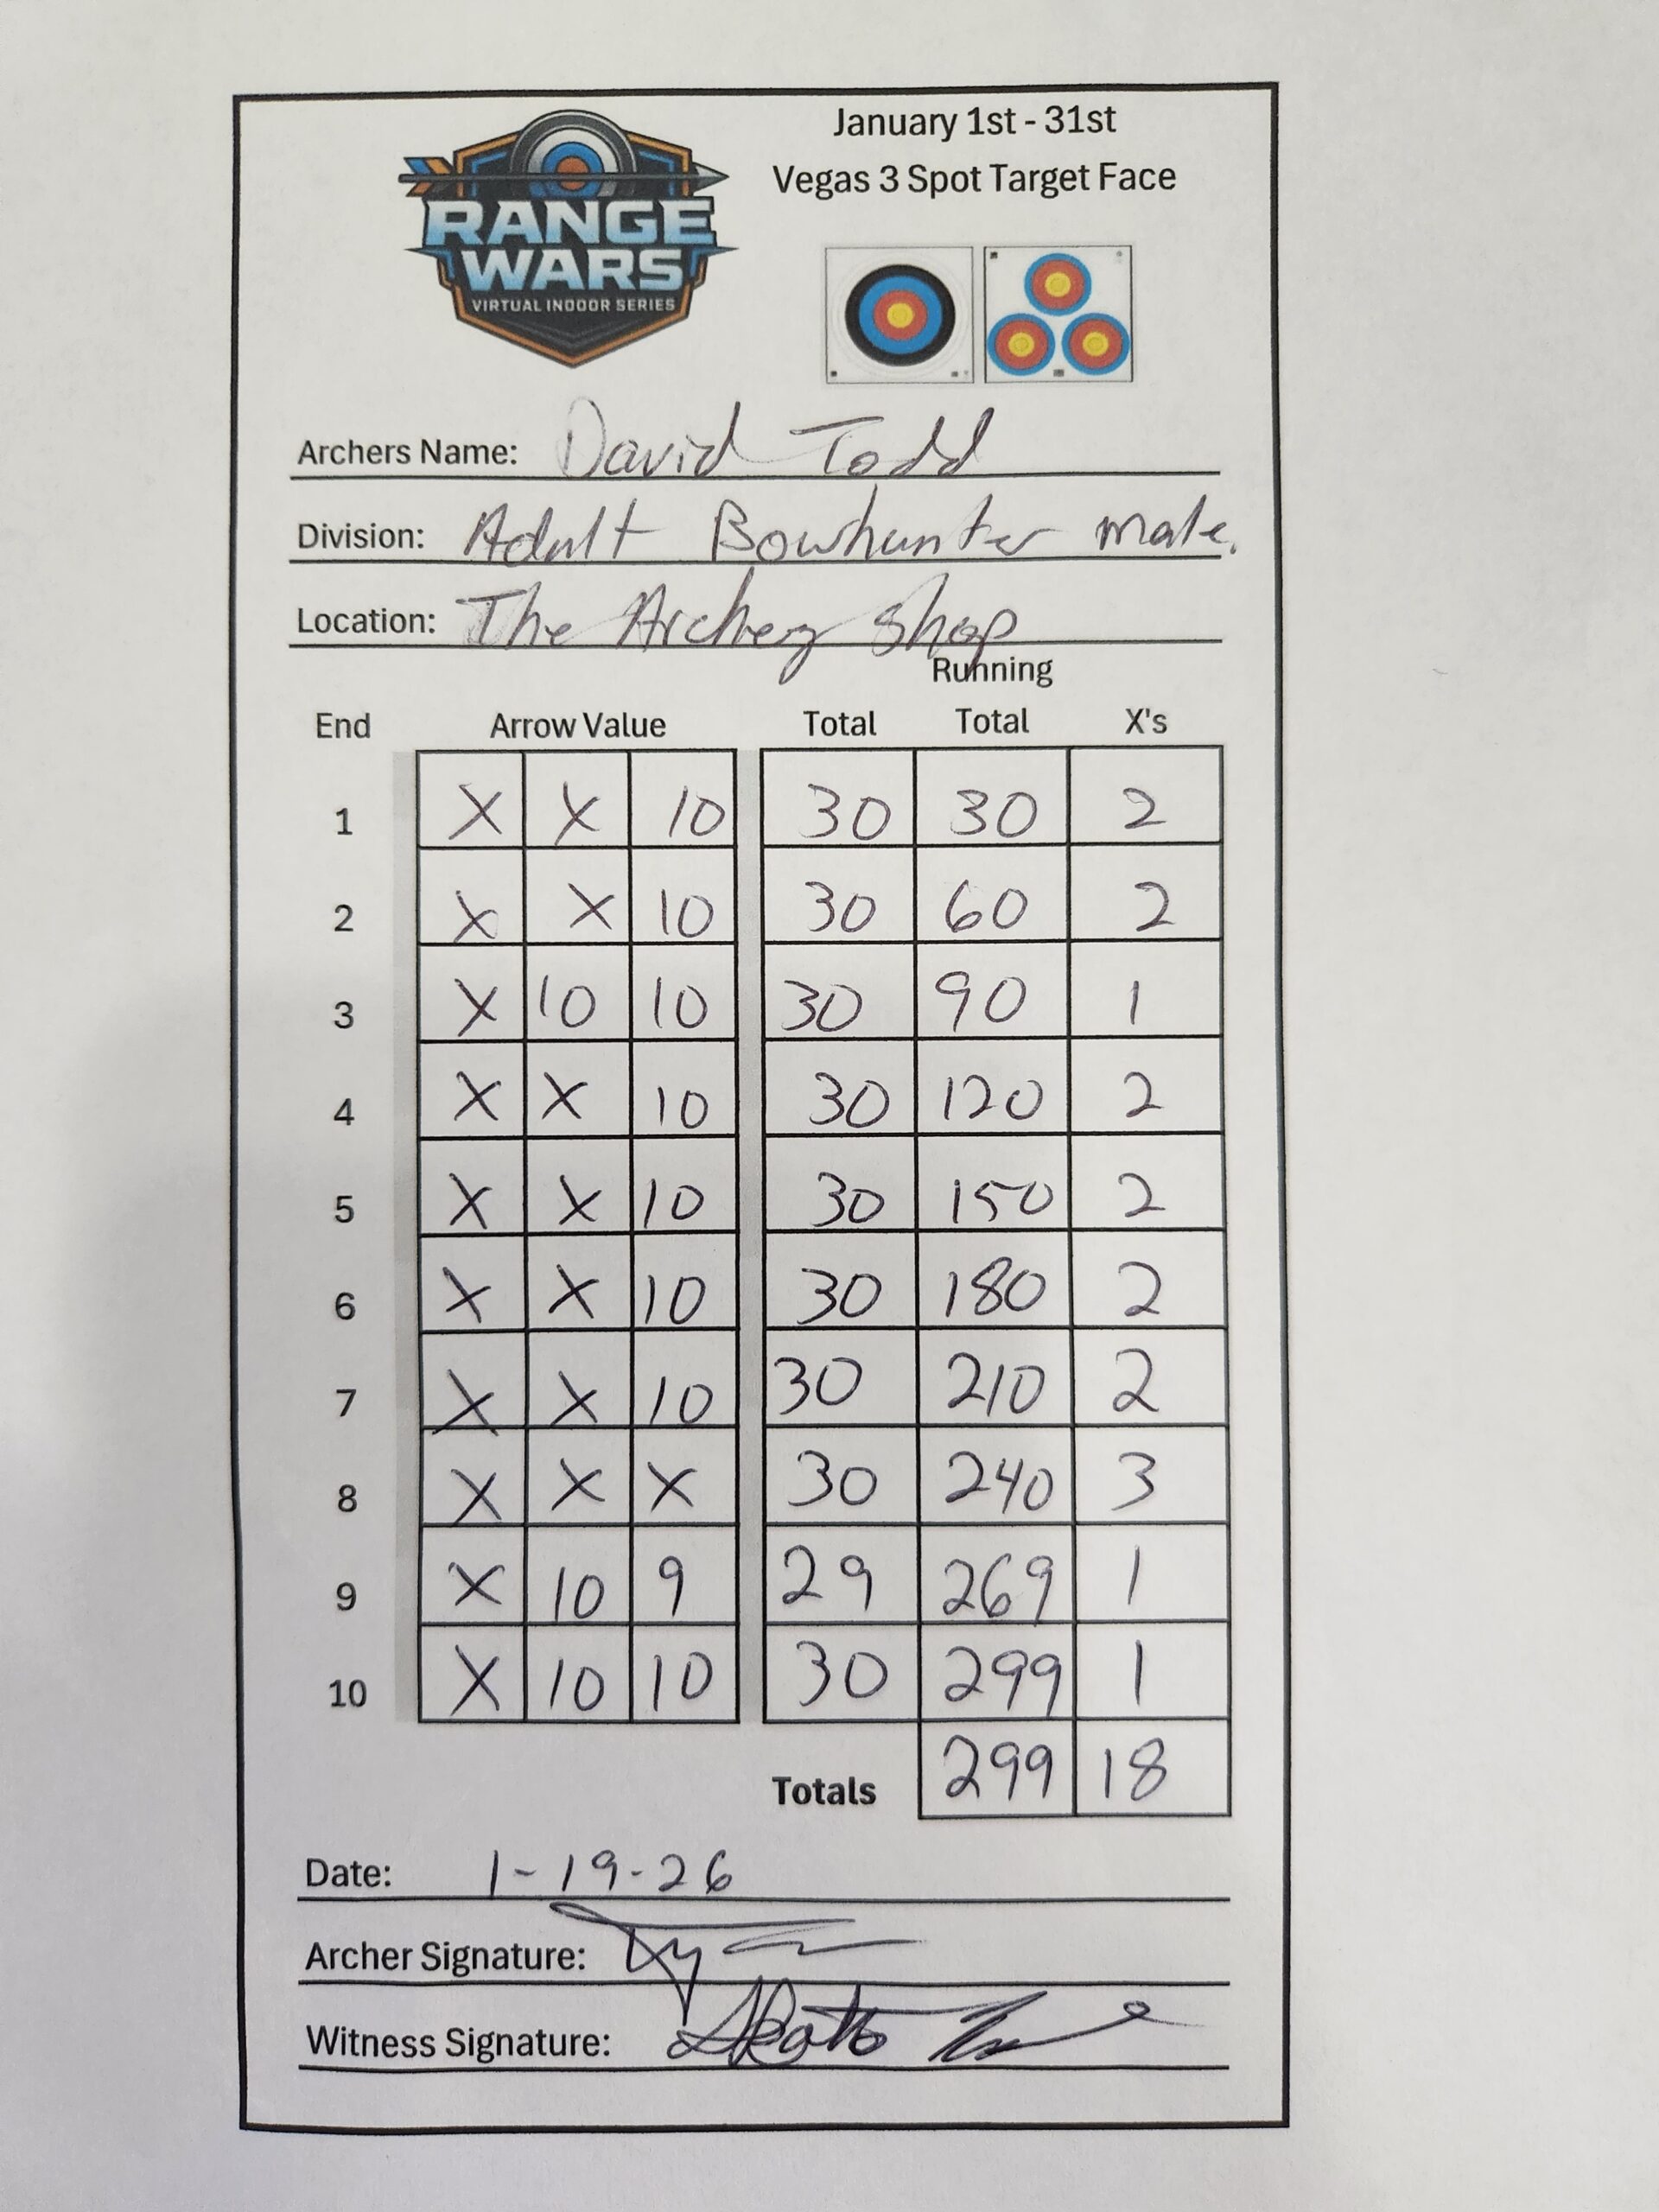 January 1st - 31st
Vegas 3 Spot Target Face
RANGE
WARS
VIRTUAL INDOOR SERIES
Archers Name: David Todd
Division: Adult Bowhunter male.
Location: The Archery Shop
Running
End Arrow Value Total Total X's
1 X X 10 30 30 2
2 X X 10 30 60 2
3 X 10 10 30 90 1
4 X X 10 30 120 2
5 X X 10 30 150 2
6 X X 10 30 180 2
7 X X 10 30 210 2
8 X X X 30 240 3
9 X 10 9 29 269 1
10 X 10 10 30 299 1
Totals 299 18
Date: 1-19-26
Archer Signature:
Witness Signature: